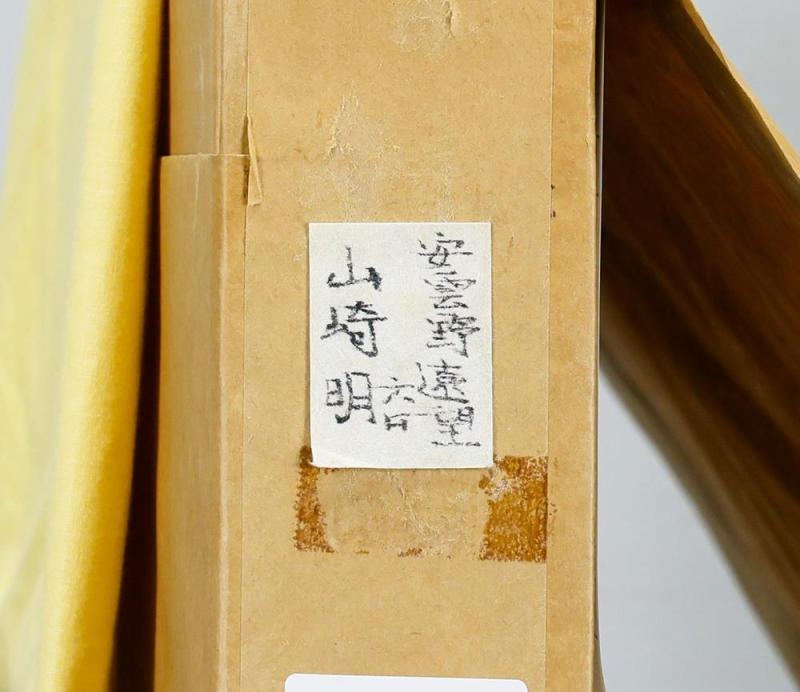 安雲野遠望
六口
山崎明